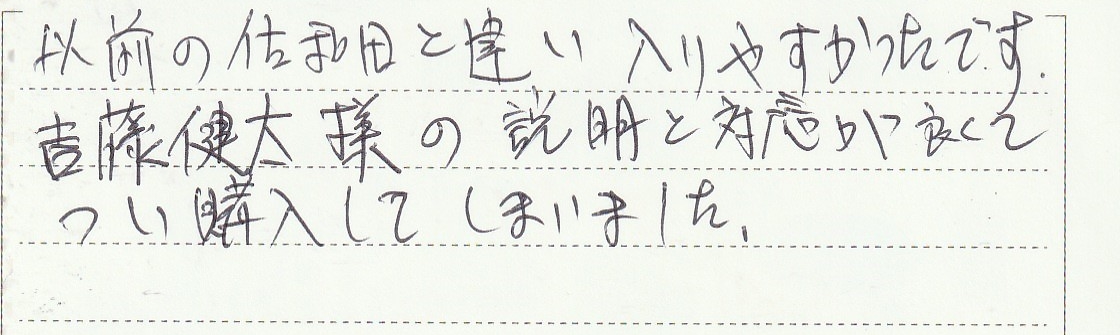 以前の佐和田と違い 入りやすかったです.
吉藤健太様の説明と対応が良くて
つい購入してしまいました.